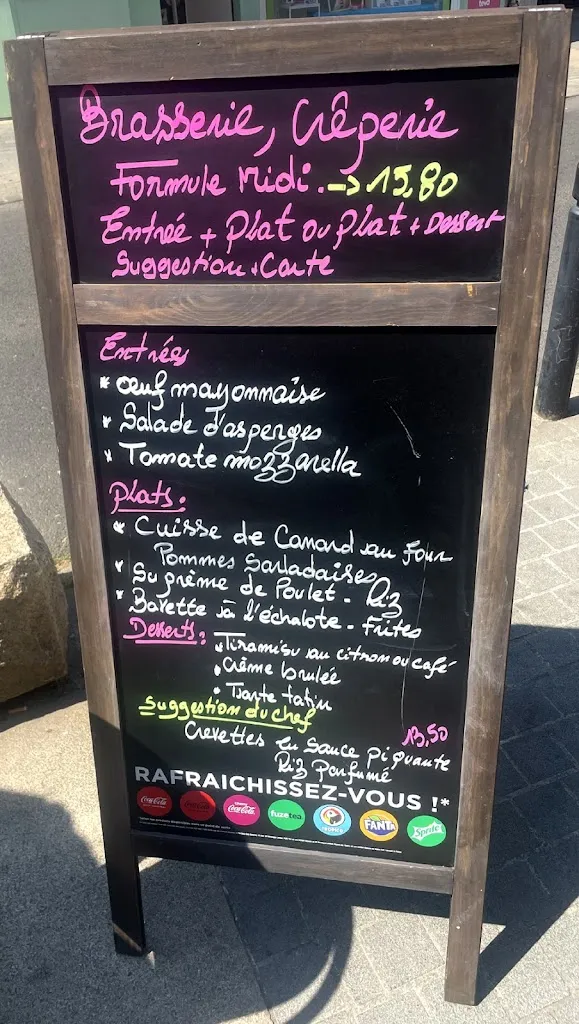 Brasserie, Crêperie
Formule Midi. -> 15,80
Entrée + Plat ou Plat + Dessert
Suggestion + Carte
Entrées
* œuf mayonnaise
* Salade d'asperges
* Tomate mozzarella
Plats :
* Cuisse de Canard au Four
Pommes Sarladaises
* Suprême de Poulet - Riz
* Bavette à l'échalote - Frites
Desserts :
* Tiramisu au citron ou café
* Crème brulée
* Tarte tatin
Suggestion du chef
13,50
Crevettes en Sauce piquante
Riz parfumé
RAFRAICHISSEZ-VOUS !*
Coca-Cola Coca-Cola Coca-Cola fuzetea TROPICO FANTA Sprite